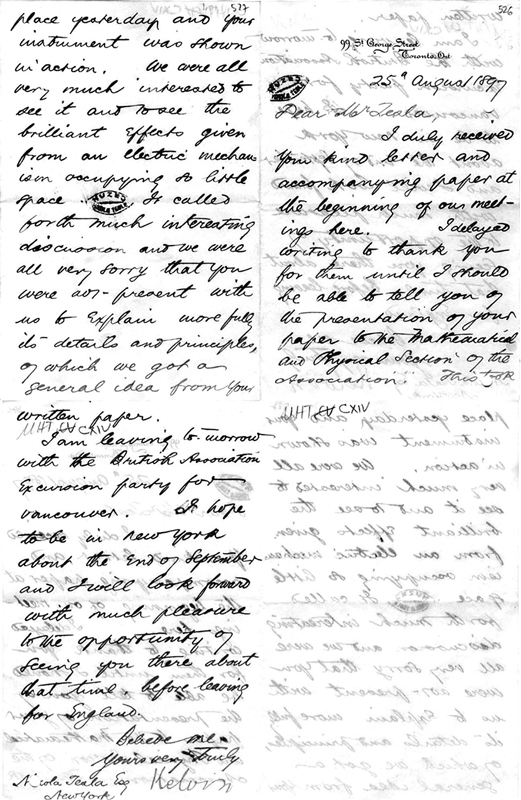 526
99 St George Street
Toronto, Ont
25th August 1897
Dear Mr Tesla
I duly received
your kind letter and
accompanying paper at
the beginning of our meet-
ings here. I delayed
writing to thank you
for them until I should
be able to tell you of
the presentation of your
paper to the Mathematical
and Physical Section of the
Association. This took
527
place yesterday and your
instrument was shown
in action. We were all
very much interested to
see it and to see the
brilliant effects given
from an electric mechan-
ism occupying so little
space. It called
forth much interesting
discussion and we were
all very sorry that you
were not present with
us to explain more fully
its details and principles,
of which we got a
general idea from your
written paper.
CXIV
I am leaving to-morrow
with the British Association
Excursion party for
Vancouver. I hope
to be in New York
about the end of September
and I will look forward
with much pleasure
to the opportunity of
seeing you there about
that time, before leaving
for England.
Believe me
Yours very truly
Kelvin
Nicola Tesla Esq
New York
CXIV